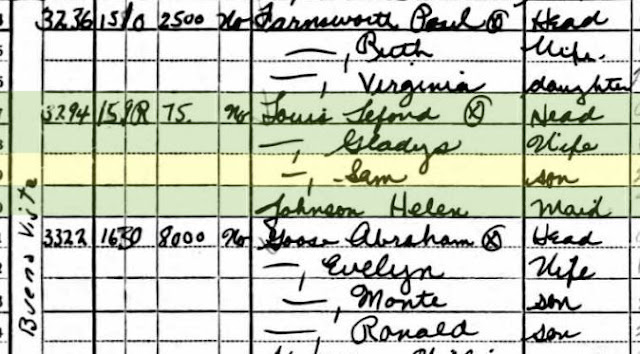 3236 15 O 2500 No Farnsworth Paul ⓧ Head
—, Ruth Wife
—, Virginia daughter
3294 R 75. No Louis Lefond ⓧ Head
—, Gladys Wife
—, Sam son
Johnson Helen Maid
3322 O 8000 No Abraham ⓧ Head
—, Evelyn Wife
—, Monte son
—, Ronald son
Buena Vista